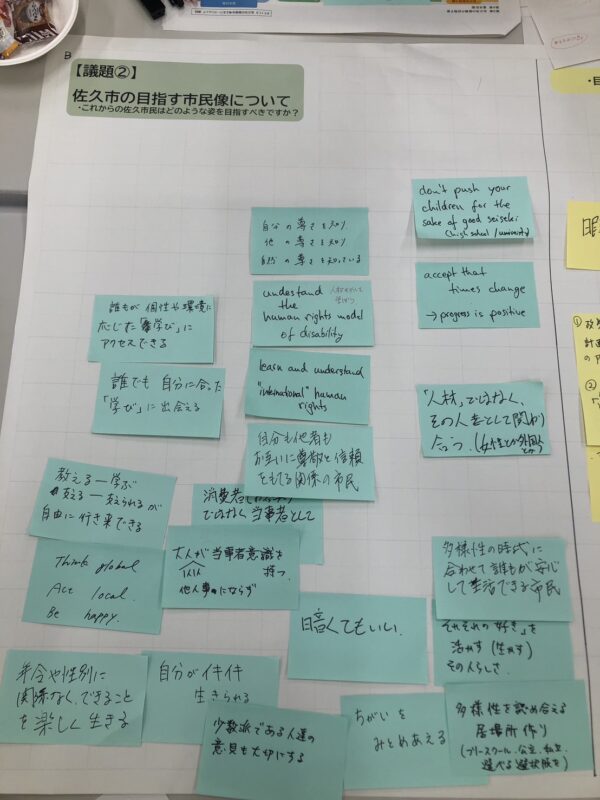 【議題②】
佐久市の目指す市民像について
・これからの佐久市民はどのような姿を目指すべきですか？
don't push your
children for the
sake of good seiseki
(high school / university)
自分の尊さを知り
他の尊さを知り
自然の尊さを知っている
accept that
times change
→ progress is positive
understand
the
human rights model
of disability
誰もが個性や環境に
応じた「学び」に
アクセスできる
learn and understand
"international" human
rights
誰でも自分に合った
「学び」に出会える
「人材」ではなく、
その人を人として関わり
合う。(女性とか外国人
とか)
自分も他者も
お互いに尊敬と信頼
をもてる関係の市民
教える―学ぶ
支える―支えられるが
自由に行き来できる
消費者
ではなく当事者として
大人が当事者意識を
持つ。
他人事にならず
Think global
Act local.
Be happy.
多様性の時代に
合わせて誰もが安心
して生活できる市民
暗くてもいい.
それぞれの「好き」を
活かす(生かす)
その人らしさ
年令や性別に
関係なく、できること
を楽しく生きる
自分がイキイキ
生きられる
少数派である人達の
意見も大切にする
ちがいを
みとめあえる
多様性を認め合える
居場所作り
(フリースクール、公立、私立
選べる選択肢を)